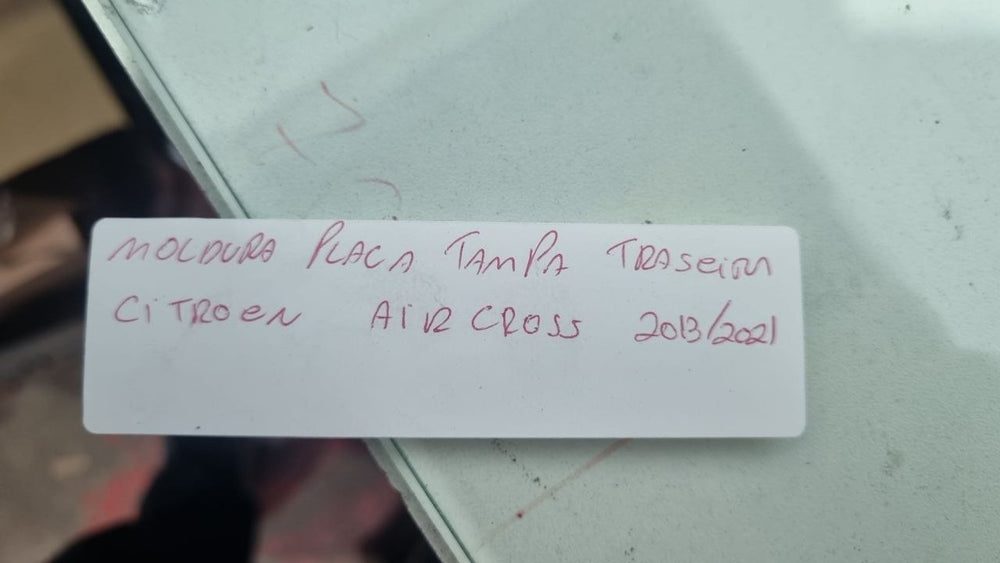 MOLDURA PLACA TAMPA TRASEIRA
CiTROEN AiR CROSS 2013/2021